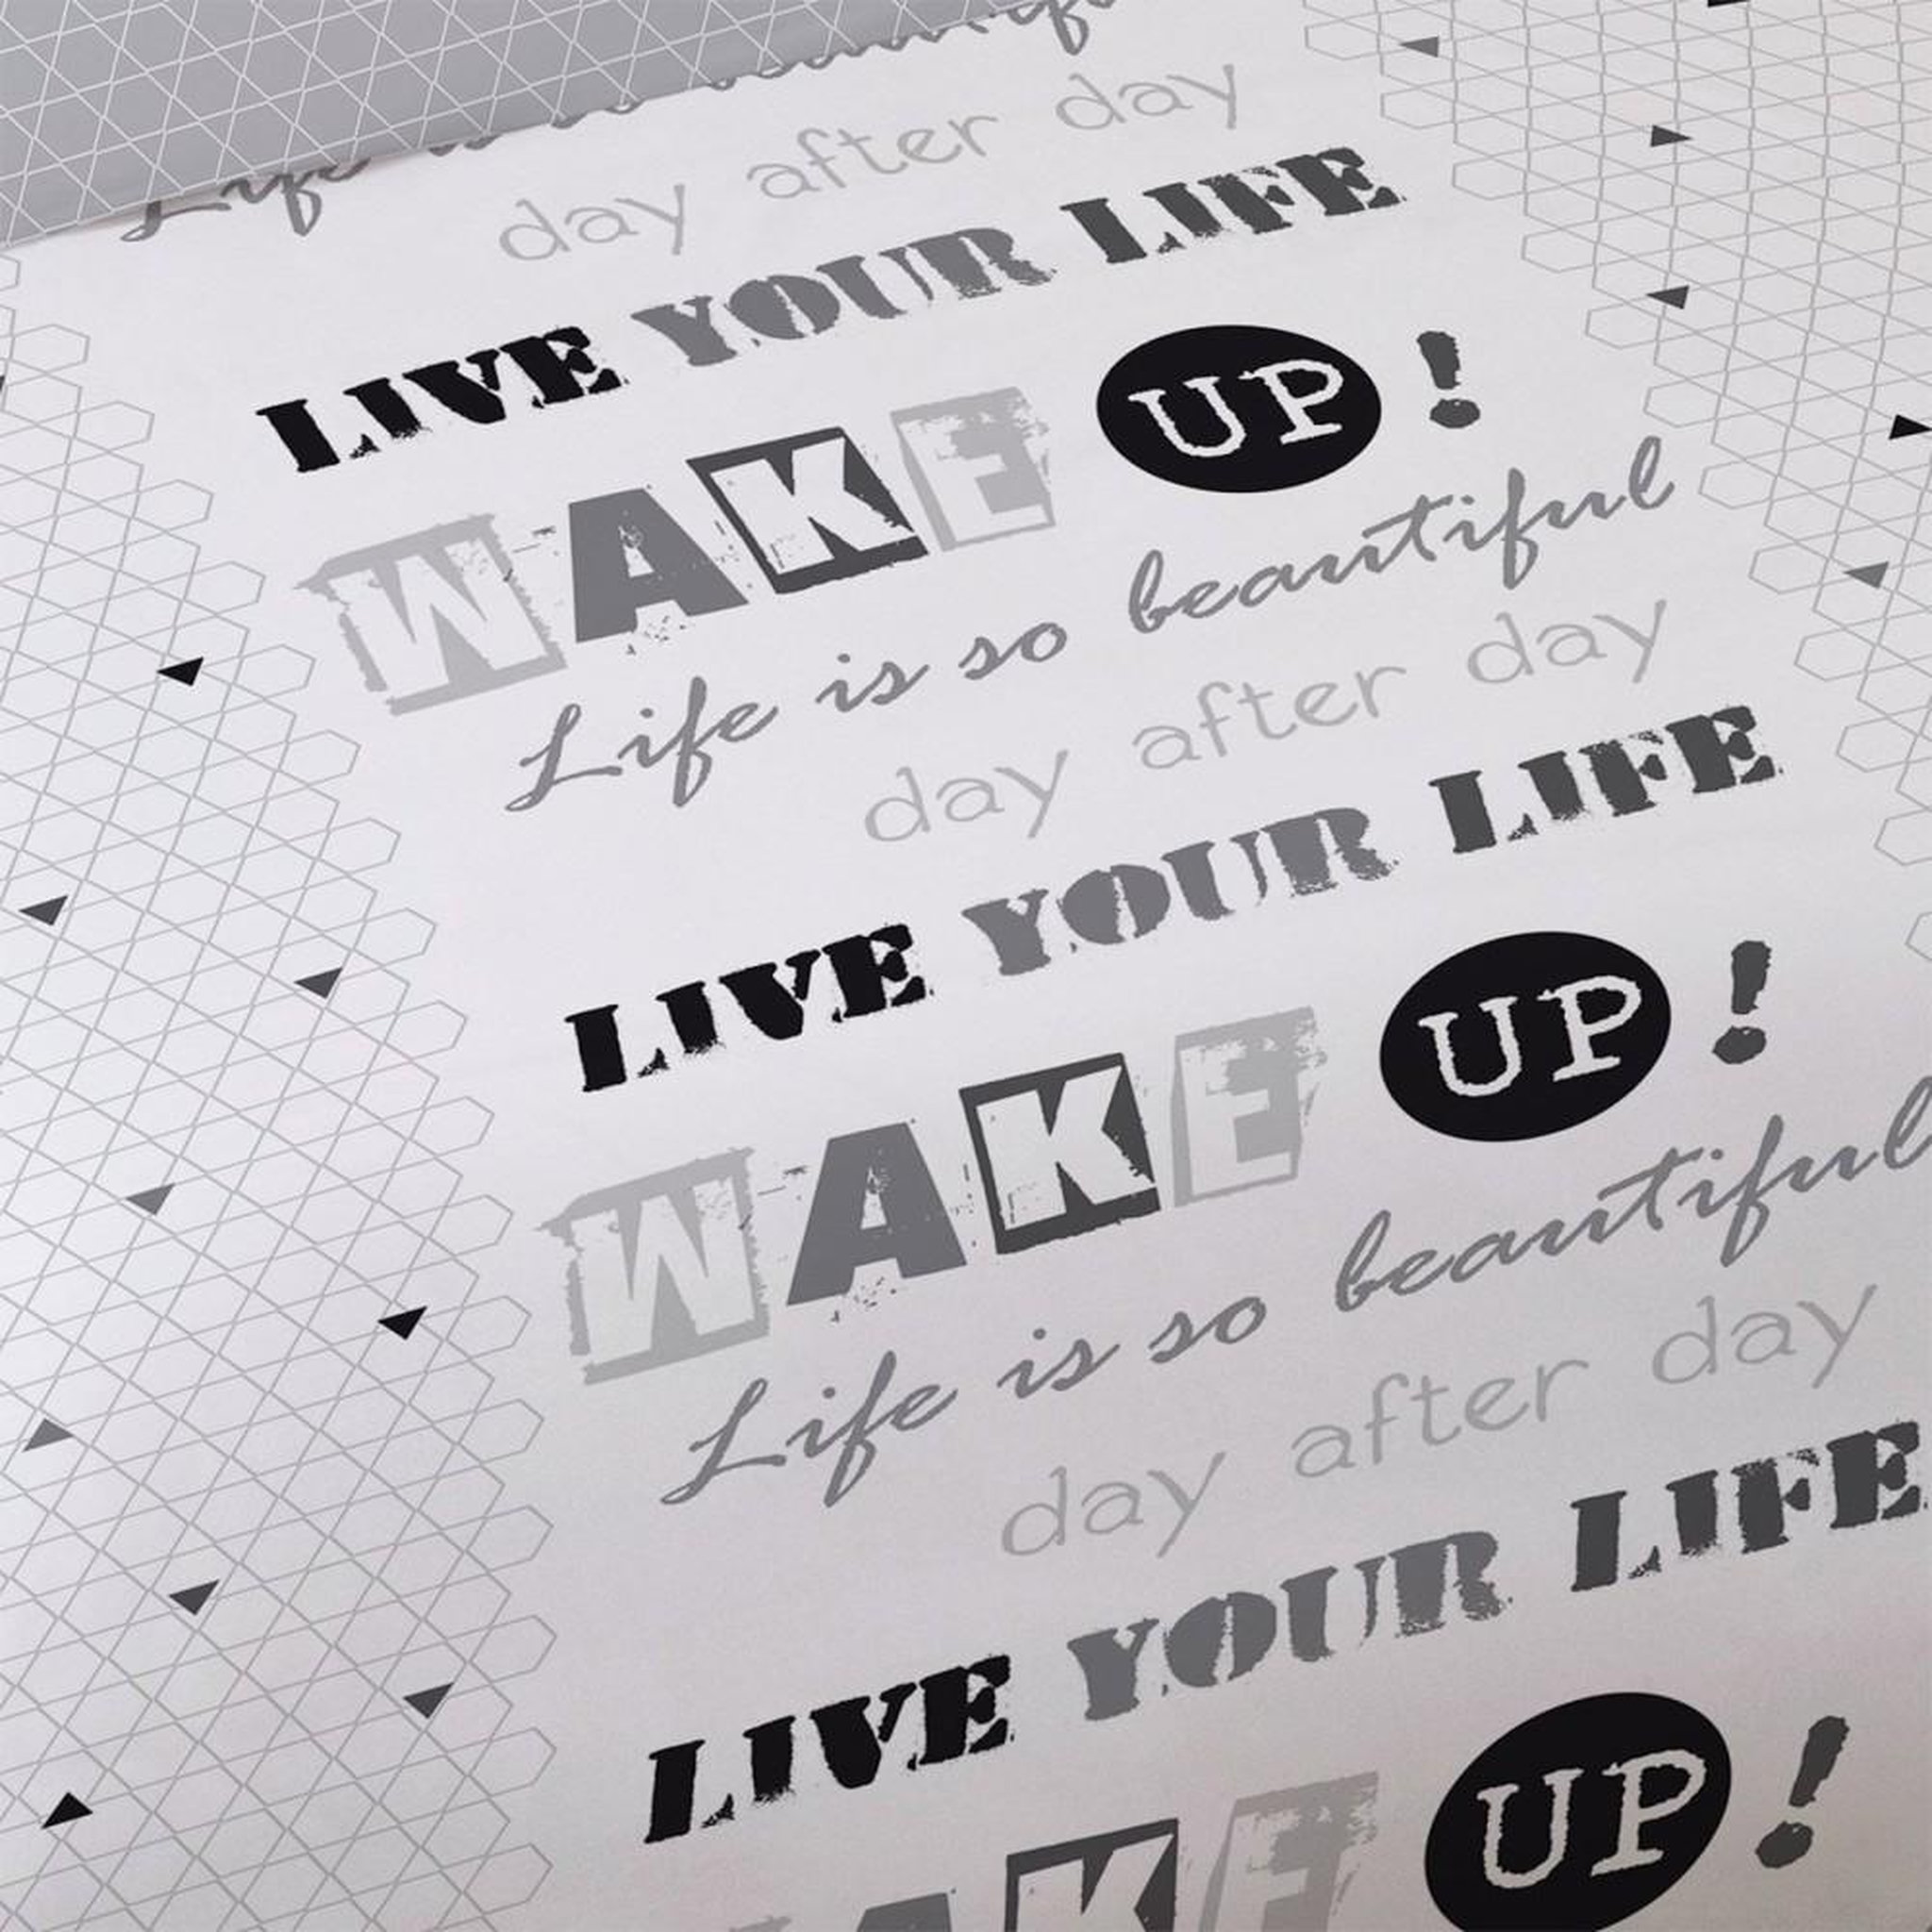 Life
day after day
LIVE YOUR LIFE
WAKE UP!
Life is so beautiful
day after day
LIVE YOUR LIFE
WAKE UP!
Life is so beautiful
day after day
LIVE YOUR LIFE
AKE UP!